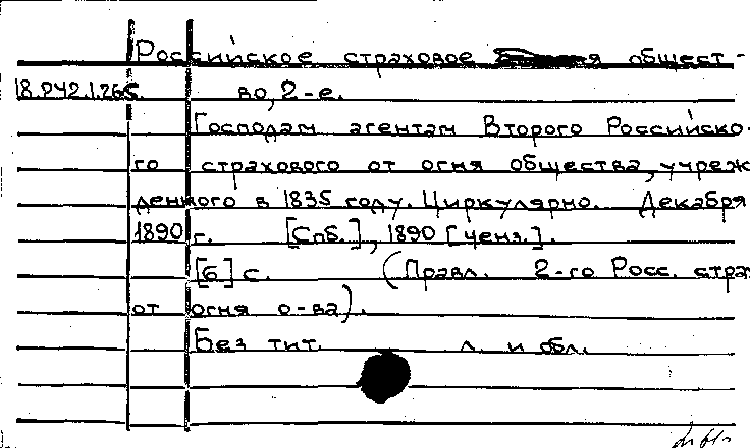 Российское страховое общест-
18.242.1.265 во, 2-е.
Господам агентам Второго Российско-
го страхового от огня общества, учреж
денного в 1835 году. Циркулярно. Декабря
1890 г. [Спб.], 1890 [ценз.].
[6] с. (Правл. 2-го Росс. страх
от огня о-ва).
Без тит. л. и обл.